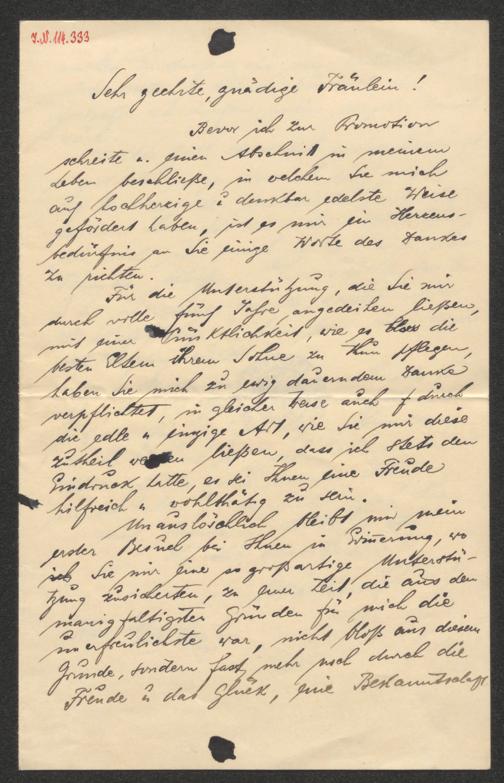 I.N. 114.333
Sehr geehrte, gnädige Fräulein!
Bevor ich zur Promotion
schreite u. einen Abschnitt in meinem
Leben beschließe, in welchem Sie mich
auf hochherzige u denkbar edelste Weise
gefördert haben, ist es mir ein Herzens-
bedürfnis an Sie einige Worte des Dankes
zu richten.
Für die Unterstützung, die Sie mir
durch volle fünf Jahre, angedeihen ließen,
mit einer Pünktlichkeit, wie es bloss die
besten Eltern ihrem Sohne zu thun pflegen,
haben Sie mich zu ewig dauerndem Danke
verpflichtet, in gleicher Weise auch durch
die edle u innige Art, wie Sie mir diese
zutheil werden ließen, dass ich stets den
Eindruck hatte, es sei Ihnen eine Freude
hilfreich u wohlthätig zu sein.
Unauslöschlich bleibt mir mein
erster Besuch bei Ihnen in Erinnerung, wo
Sie mir eine so großartige Unterstü-
tzung zusicherten, zu jener Zeit, die aus den
manigfaltigsten Gründen für mich die
unerfreulichste war, nicht bloß aus diesem
Grunde, sondern fast mehr noch durch die
Freude u das Glück, eine Bekanntschaft